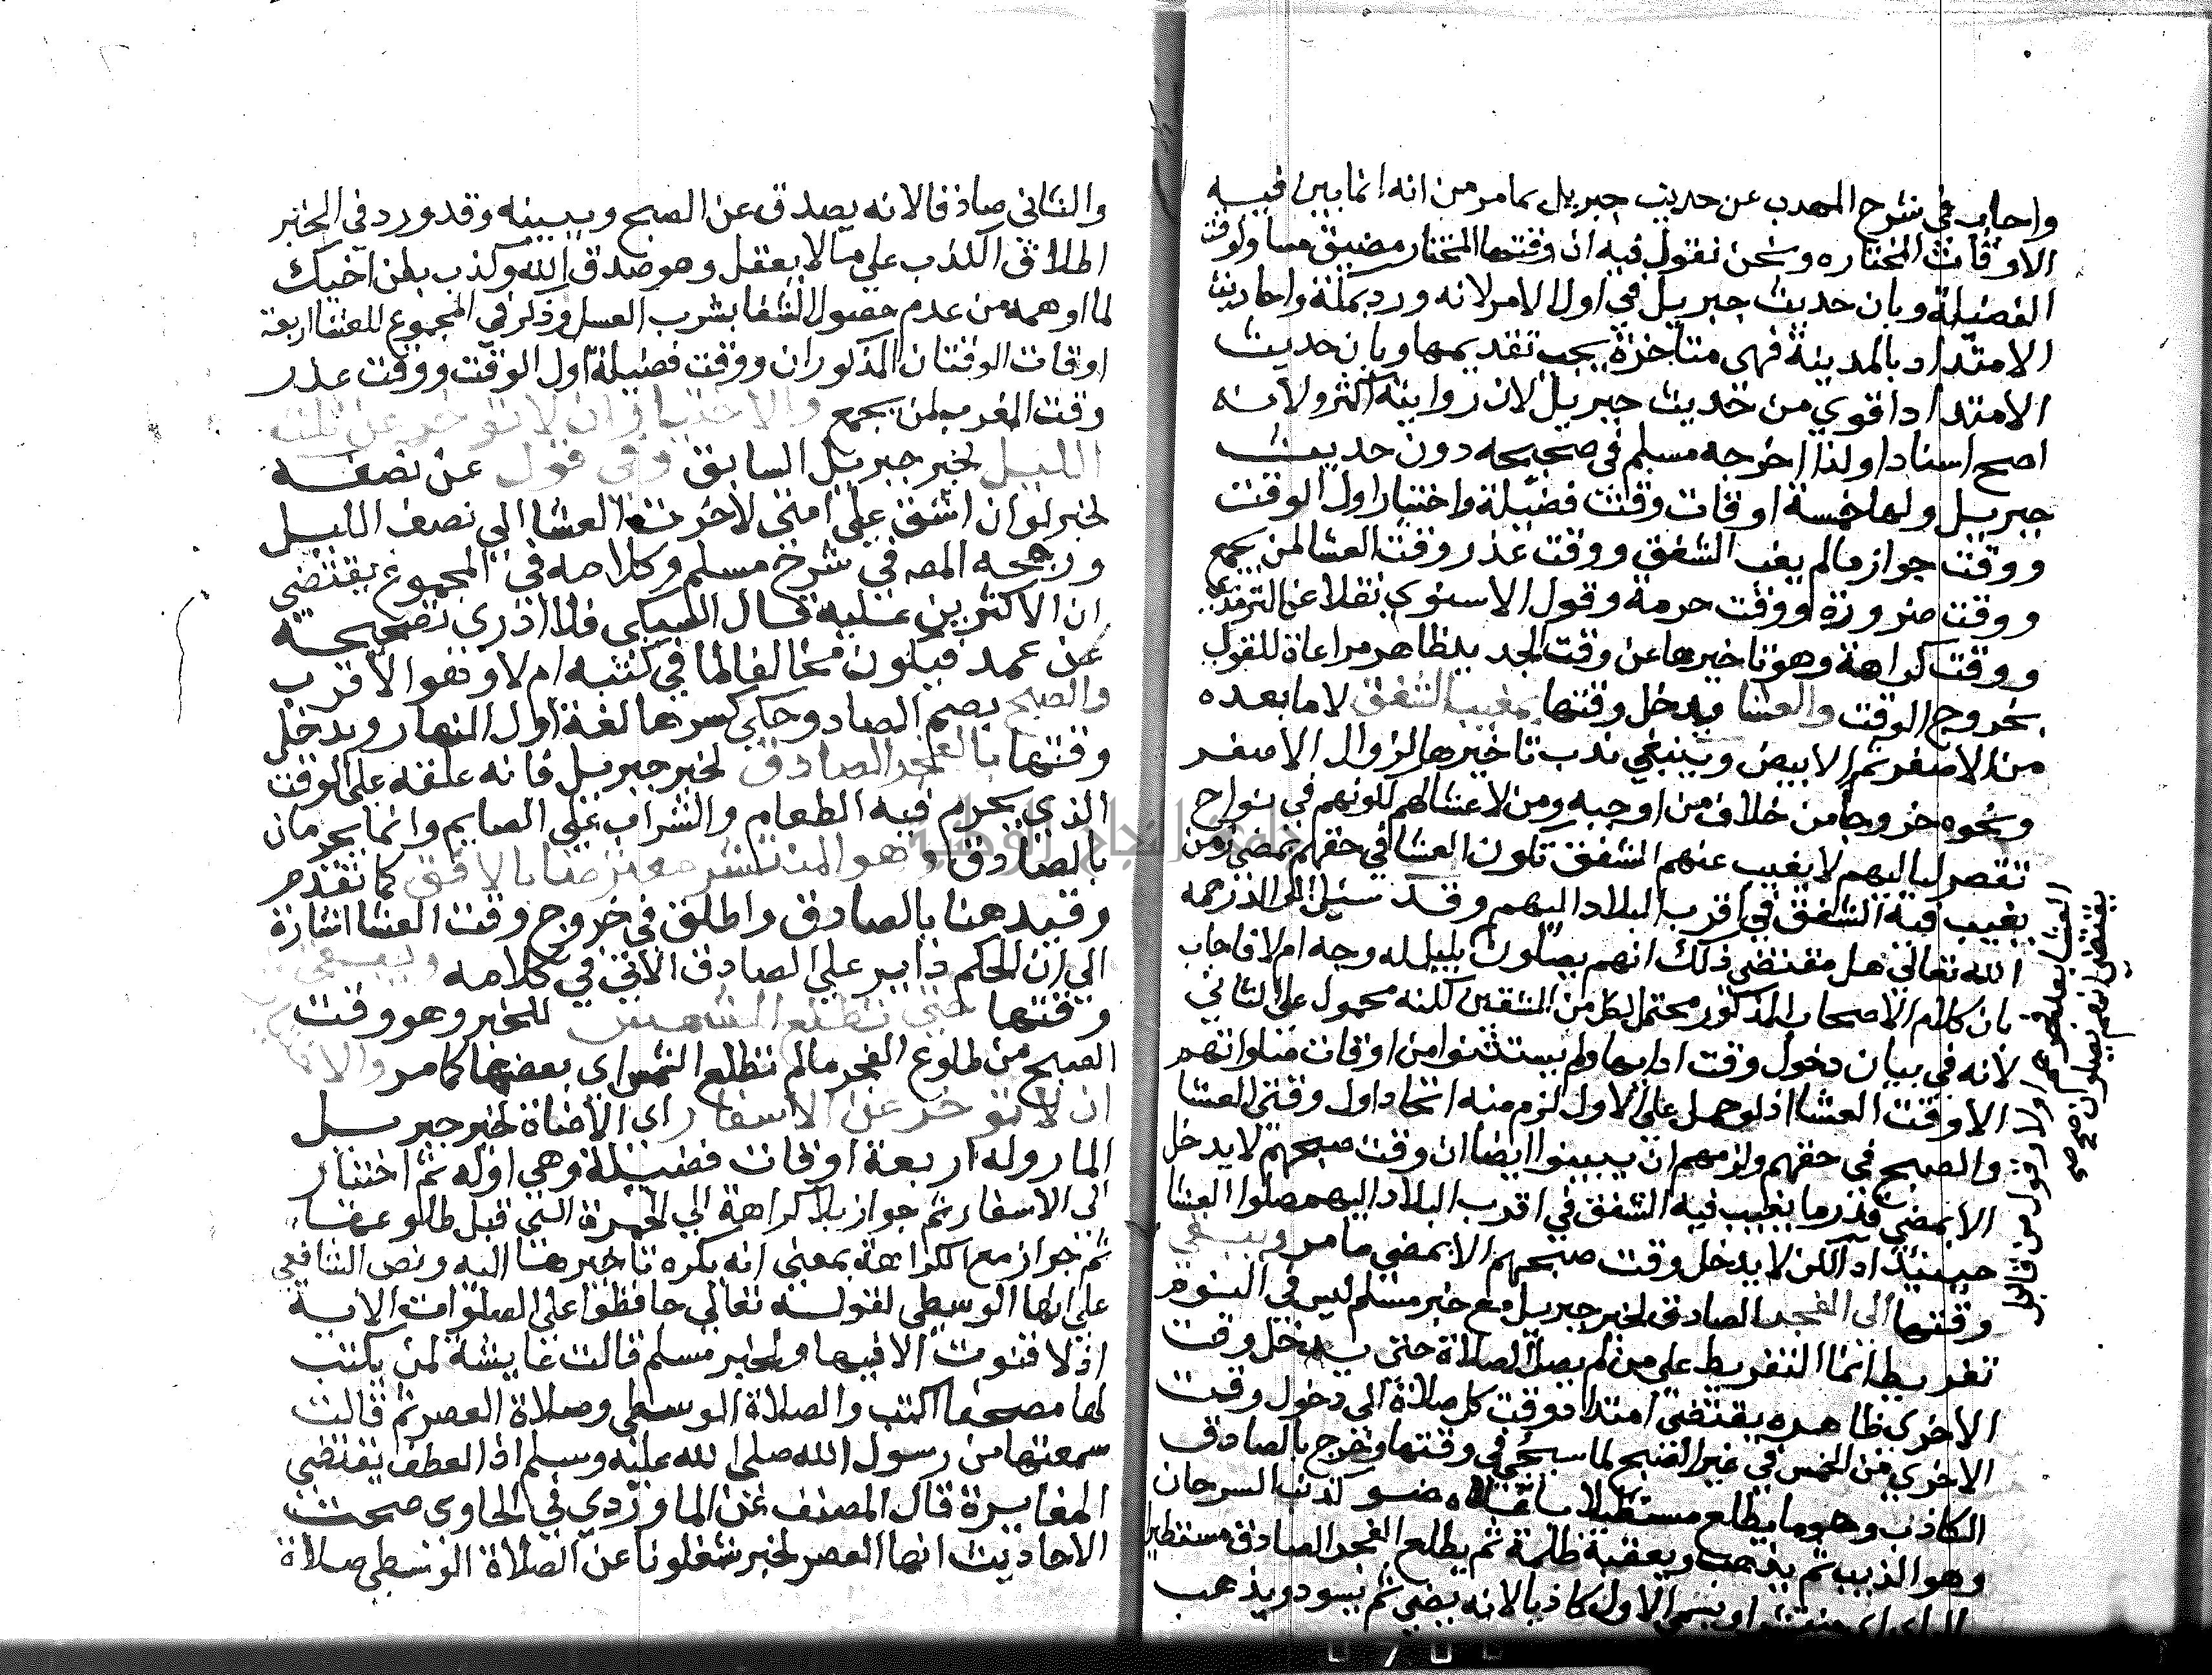 واجاب في شرح المهذب عن حديث جبريل بمامر من انه انما بين فيه
الاوقات المختاره ونحن نقول فيه ان وقتها المختار مضيق مساو لوقت
الفضيلة وبان حديث جبريل في اول الامر لانه ورد بمكة واحاديث
الامتداد بالمدينة فهي متاخرة يجب تقديمها وبان حديث
الامتداد اقوي من حديث جبريل لان رواته اكثر ولانه
اصح اسنادا ولذا اخرجه مسلم في صحيحه دون حديث
جبريل ولها خمسة اوقات وقت فضيلة واختيار اول الوقت
ووقت جواز مالم يغب الشفق ووقت عذر وقت العشا لمن يجمع
ووقت ضرورة ووقت حرمة وقول الاسنوي نقلا عن الترمذي
ووقت كراهة وهو تاخيرها عن وقت الجديد ظاهر مراعاة للقول
بخروج الوقت والعشا ويدخل وقتها بمغيب الشفق لا ما بعده
من الاصفر ثم الابيض وينبغي ندب تاخيرها لزوال الاصفر
ونحوه خروجا من خلاف من اوجبه ومن لا عشا لهم لكونهم في نواح
تقصر لياليهم لا يغيب عنهم الشفق تكون العشا في حقهم بمضي زمن
يغيب فيه الشفق في اقرب البلاد اليهم وقد سئل الوالد رحمه
الله تعالي هل مقتضي ذلك انهم يصلون بليل له وجه ام لا فاجاب
بان كلام الاصحاب المذكور محتمل لكل من الشقين لكنه محمول على الثاني
لانه في بيان دخول وقت ادايها ولم يستثنوا من اوقات صلواتهم
الا وقت العشا اذ لو حمل على الاول لزم منه اتحاد اول وقتي العشا
والصبح في حقهم ولزمهم ان يبينوا ايضا ان وقت صبحهم لا يدخل
الا بمضي قدر ما يغيب فيه الشفق في اقرب البلاد اليهم صلوا العشا
حينئذ اداء لكن لا يدخل وقت صبحهم الا بمضي ما مر ويبقي
وقتها الى الفجر الصادق لخبر جبريل مع خبر مسلم ليس في النوم
تفريط انما التفريط على من لم يصل الصلاة حتي يدخل وقت
الاخري ظاهره يقتضي امتداد وقت كل صلاة الي دخول وقت
الاخري من الخمس في غير الصبح لما سيجي في وقتها وخرج بالصادق
الكاذب وهو ما يطلع مستطيلا باعلاه ضو كذنب السرحان
وهو الذيب ثم يذهب ويعقبه ظلمة ثم يطلع الفجر الصادق مستطيرا
بالراي اي منتشرا ويسمي الاول كاذبا لانه يضي ثم يسود ويذهب
يقتضي انهم يصلون صح صح
والثاني صادقا لانه يصدق عن الصبح ويبينه وقد ورد في الخبر
اطلاق الكذب علي ما لا يعقل وهو صدق الله وكذب بطن اخيك
لما اوهمه من عدم حصول الشفا بشرب العسل وذكر في المجموع للعشا اربعة
اوقات الوقتان المذكوران ووقت فضيلة اول الوقت ووقت عذر
وقت المغرب لمن يجمع والاختيار ان لا توخر عن ثلث
الليل لخبر جبريل السابق وفي قول عن نصفه
لخبر لولا ان اشق علي امتي لاخرت العشا الي نصف الليل
ورجحه المصـ في شرح مسلم وكلامه في المجموع يقتضي
ان الاكثرين عليه قال السبكي فلا ادري تصحيحه
عن عمد فيكون مخالفا لما في كتبه ام لا وهو الاقرب
والصبح بضم الصاد وحكي كسرها لغة اول النهار ويدخل
وقتها بالفجر الصادق لخبر جبريل فانه علقه على الوقت
الذي يحرم فيه الطعام والشراب على الصايم وانما يحرمان
بالصادق وهو المنتشر معترضا بالافق كما تقدم
وقيد هنا بالصادق واطلق في خروج وقت العشا اشارة
الي ان الحكم داير على الصادق الاتي في كلامه ويبقي
وقتها حتي تطلع الشمس للخبر وهو وقت
الصبح من طلوع الفجر مالم تطلع الشمس اي بعضها كما مر والاختيار
ان لا توخر عن الاسفار اي الاضاة لخبر جبريل
المار وله اربعة اوقات فضيلة وهي اوله ثم اختيار
الى الاسفار ثم جواز بلا كراهة الي الحمرة التي قبل طلوعها
ثم جواز مع الكراهة بمعني انه يكره تاخيرها اليه ونص الشافعي
علي انها الوسطي لقوله تعالي حافظوا على الصلوات الاية
اذ لا قنوت الا فيها ولخبر مسلم قالت عايشة لمن يكتب
لها مصحفا اكتب والصلاة الوسطي وصلاة العصر ثم قالت
سمعتها من رسول الله صلى الله عليه وسلم اذ العطف يقتضي
المغايرة قال المصنف عن الماوردي في الحاوي صحت
الاحاديث انها العصر لخبر شغلونا عن الصلاة الوسطي صلاة